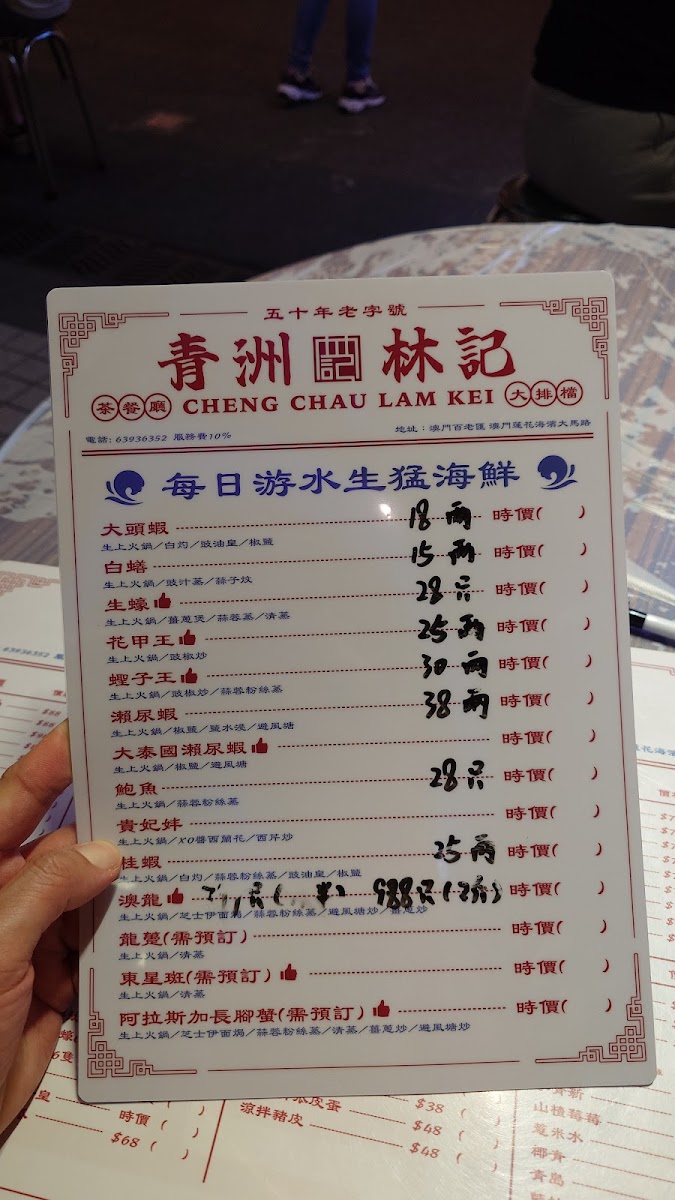 五十年老字號
青洲 林記
茶餐廳 CHENG CHAU LAM KEI 大排檔
電話: 63936352 服務費10% 地址：澳門百老匯 澳門蓮花海濱大馬路
每日游水生猛海鮮
大頭蝦 18 兩 時價( )
生上火鍋／白灼／豉油皇／椒鹽
白鱔 15 兩 時價( )
生上火鍋／豉汁蒸／蒜子炆
生蠔 28 只 時價( )
生上火鍋／薑蔥煲／蒜蓉蒸／清蒸
花甲王 25 兩 時價( )
生上火鍋／豉椒炒
蟶子王 30 兩 時價( )
生上火鍋／豉椒炒／蒜蓉粉絲蒸
瀨尿蝦 38 兩 時價( )
生上火鍋／椒鹽／鹽水浸／避風塘
大泰國瀨尿蝦 時價( )
生上火鍋／椒鹽／避風塘
鮑魚 28 只 時價( )
生上火鍋／蒜蓉粉絲蒸
貴妃蚌 時價( )
生上火鍋／XO醬西蘭花／西芹炒
桂蝦 25 兩 時價( )
生上火鍋／白灼／蒜蓉粉絲蒸／豉油皇／椒鹽
澳龍 988 只 時價( )
生上火鍋／芝士伊面焗／蒜蓉粉絲蒸／避風塘炒／薑蔥炒
龍躉(需預訂) 時價( )
生上火鍋／清蒸
東星斑(需預訂) 時價( )
生上火鍋／清蒸
阿拉斯加長腳蟹(需預訂) 時價( )
生上火鍋／芝士伊面焗／蒜蓉粉絲蒸／清蒸／薑蔥炒／避風塘炒
63936352
時價 ( )
$68 ( )
皮蛋 $38 ( )
涼拌豬皮 $48 ( )
$48 ( )
山楂莓莓
薏米水
椰青
青島